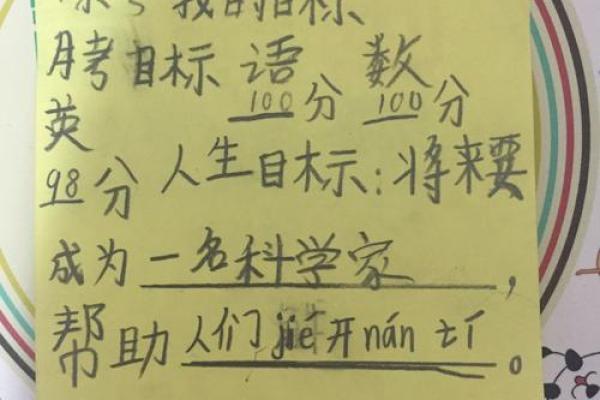 我的目标
月考目标 语 数
100分 100分
英
98分 人生目标:将来要
成为一名科学家,
帮助人们jié开nán tí。